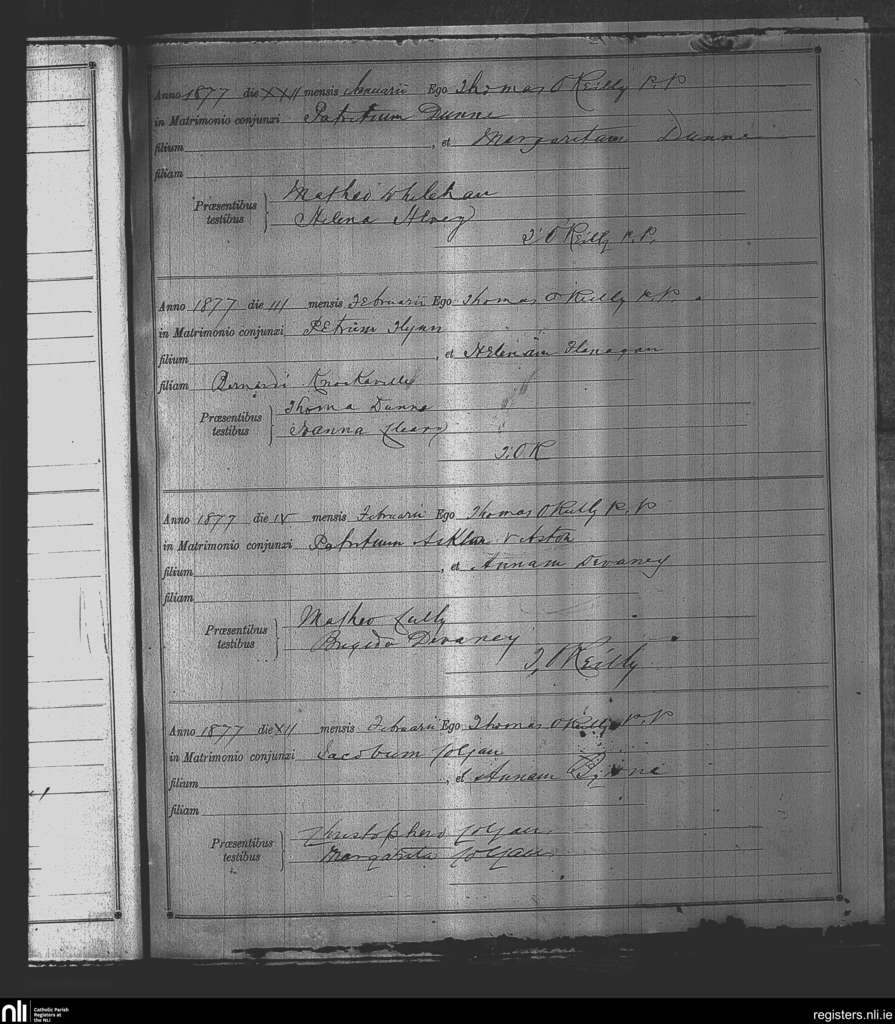 Anno 1877 die XXII mensis Januarii Ego Thomas O'Reilly P.P
in Matrimonio conjunxi Patritium Dunne
filium , et Margaritam Dunne
filiam
Præsentibus testibus Matheo Whelehan
Helena
T. O'Reilly P.P.
Anno 1877 die III mensis Februarii Ego Thomas O'Reilly P.P.
in Matrimonio conjunxi Petrum Flynn
filium , et Helenam Flanagan
filiam Bernardi
Præsentibus testibus Thoma Dunne
Joanna Cleary
T. O R
Anno 1877 die IV mensis Februarii Ego Thomas O'Reilly P.P
in Matrimonio conjunxi Patritium
filium , et Annam Devaney
filiam
Præsentibus testibus Matheo Cully
Brigida Devaney
T. O'Reilly
Anno 1877 die XII mensis Februarii Ego Thomas O'Reilly P.P
in Matrimonio conjunxi Jacobum Colgan
filium , et Annam
filiam
Præsentibus testibus Christophero Colgan
Margarita Colgan
nli Catholic Parish Registers at the NLI
registers.nli.ie